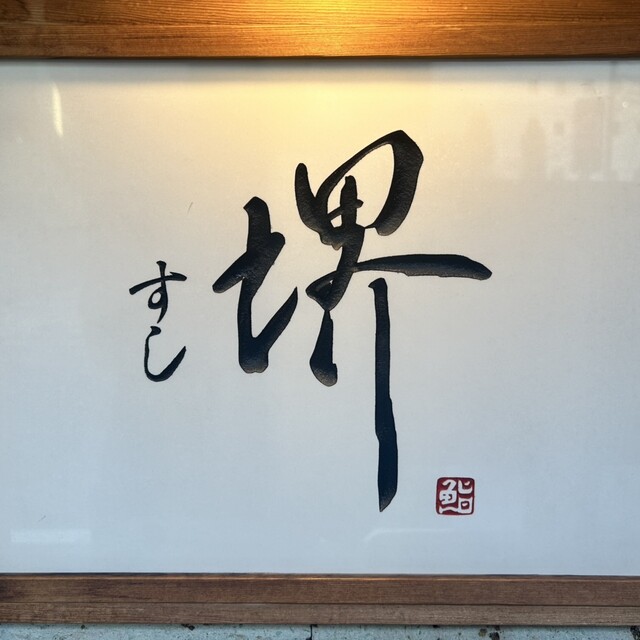 堺
すし
鮨